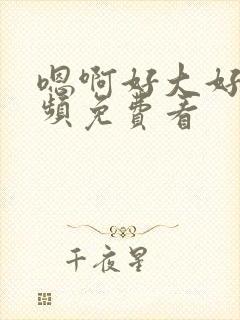 嗯啊好大好
频免费看
千夜星